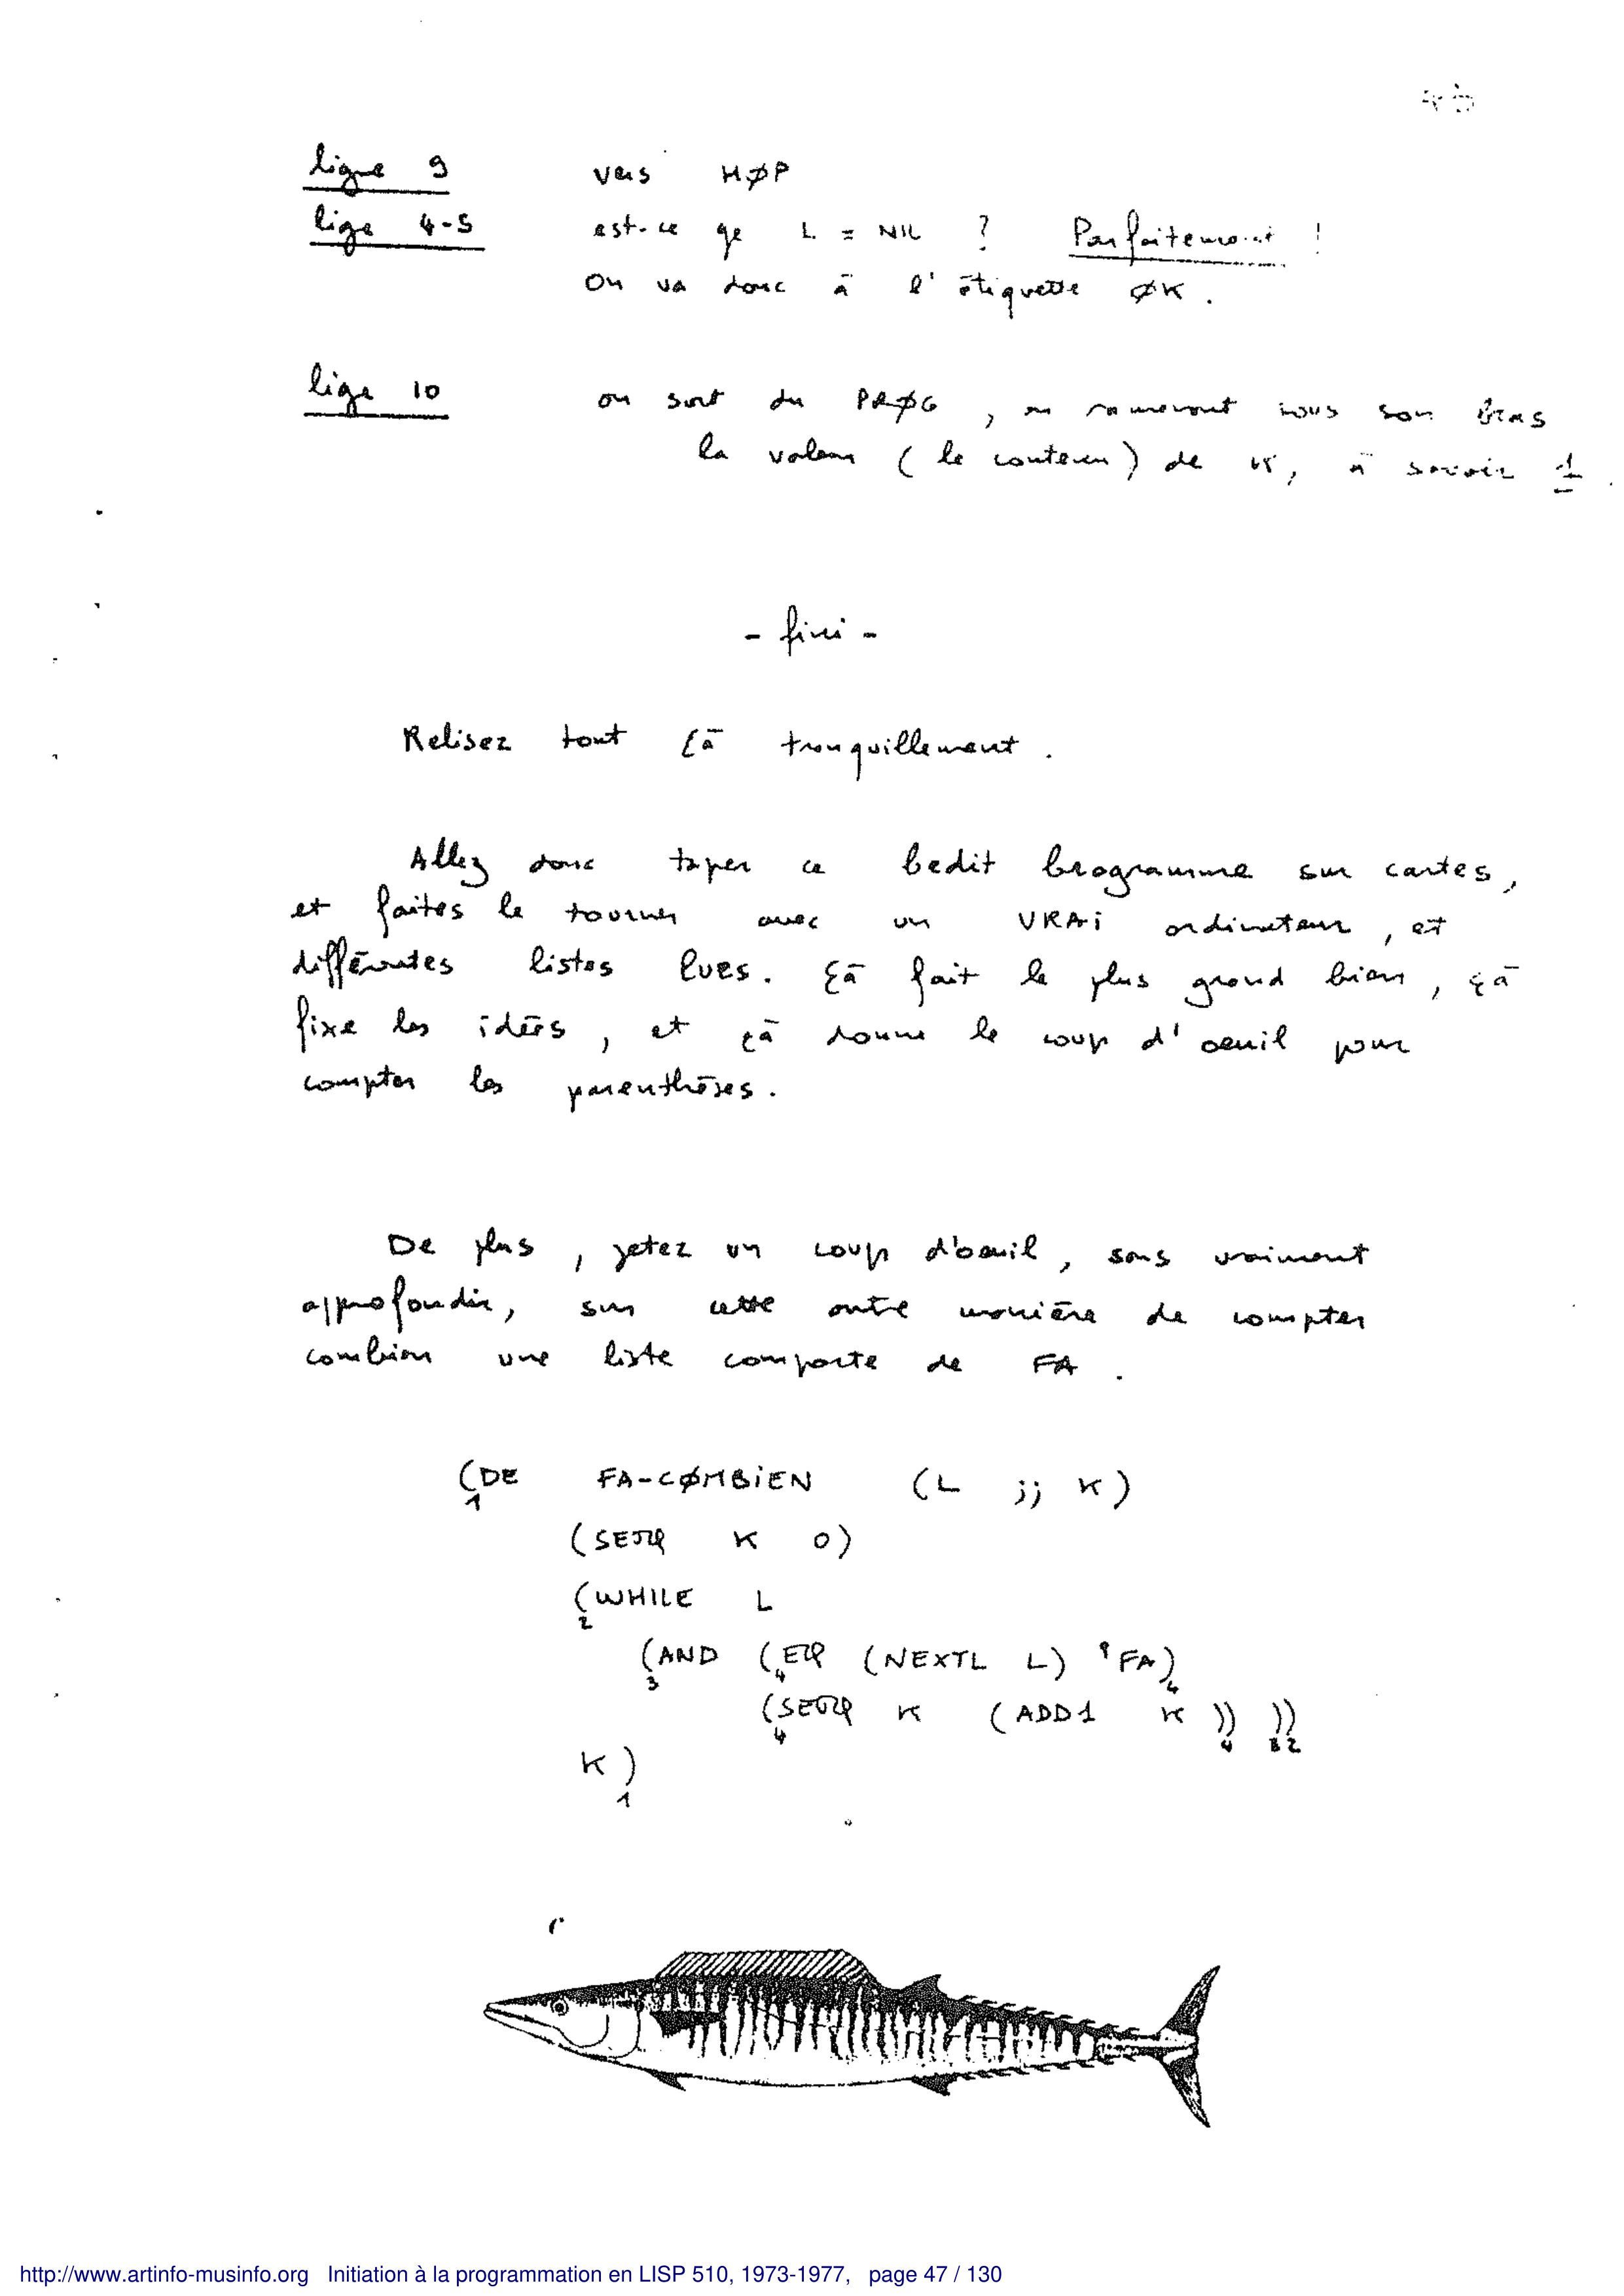 ligne 9 vers HØP
lige 4-5 est-ce qe L = NIL ? Parfaitement !
On va donc à l'étiquette ØK.
lige 10 on sort du PRØG, en ramenant sous son bras
la valeur (le contenu) de K, à savoir 1
- fini -
Relisez tout çà tranquillement.
Allez donc taper ce bedit brogramme sur cartes,
et faites le tourner avec un VRAi ordinateur, et
différentes listes lues. çà fait le plus grand bien, çà
fixe les idées, et çà donne le coup d'oeuil pour
compter les parenthèses.
De plus, jetez un coup d'oeuil, sans vraiment
approfondir, sur cette autre manière de compter
combien une liste comporte de FA.
(DE FA-CØMBiEN (L ;; K)
1
(SETQ K 0)
(WHILE L
2
(AND (EQ (NEXTL L) 'FA)
3 4 4
(SETQ K (ADD1 K )) ))
4 4 3 2
K )
1
http://www.artinfo-musinfo.org Initiation à la programmation en LISP 510, 1973-1977, page 47 / 130